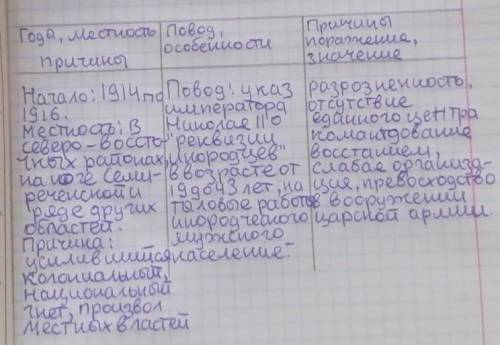 Года, местность
причины
Повод,
особенности
Причины
поражение,
значение
Начало: 1914 по
1916.
Местность: В
северо-восто-
чных районах,
на юге Семи-
реченской и
ряде других
областей.
Причина:
усилившийся
колониальный,
национальный
гнет, произвол
местных властей
Повод: указ
императора
Николая II "О
реквизии
инородцев"
в возрасте от
19 до 43 лет, на
тыловые работы
инородческого
мужского
население.
разрозненность,
отсутствие
еданного центра
командование
восстанием,
слабая организа-
ция, превосходство
в вооружении
царской армии.